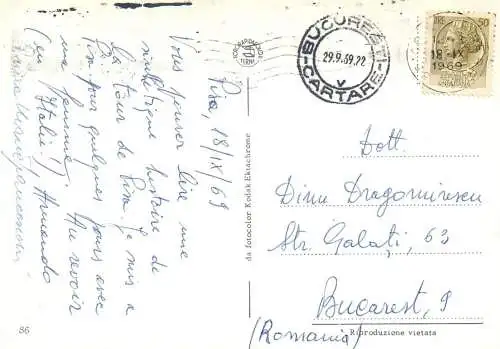 Pisa, 18/IX/69
Vous pouvez lire une
authentique histoire de
la tour de Pisa. Je suis à
Pisa pour quelques jours avec
ma femme. Au revoir
(en Italie!) Armando
Dott.
Dinu Dragomirescu
Str. Galați, 63
Bucarest, 9
(Romania)
BUCUREȘTI
29.9.69.22
CARTARE
V
LIRE 50
18-IX
1969
da fotocolor Kodak Ektachrome
86
Riproduzione vietata